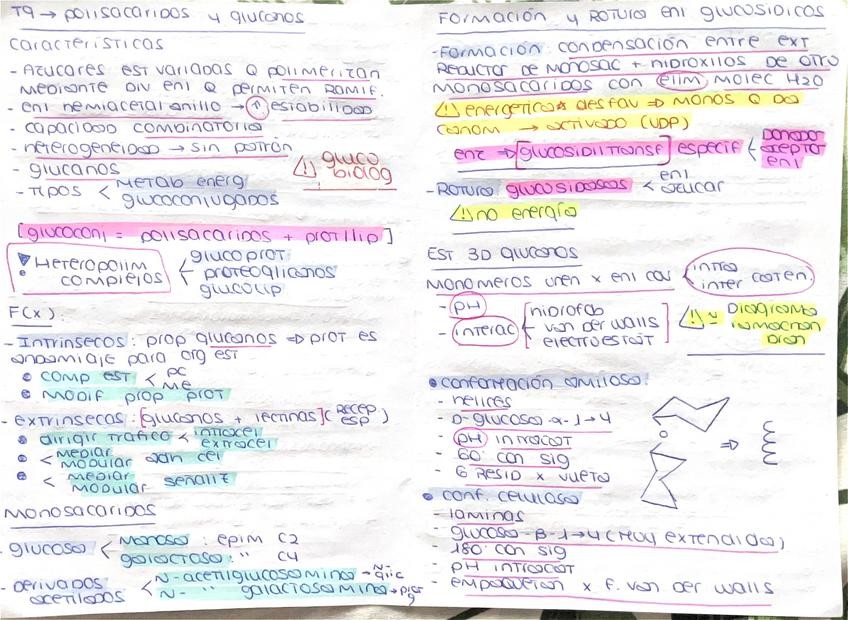 T9 → polisacaridos y glucanos
Características
- Azucares est variadas q polimerizan
mediante div enl q permiten ramif.
- enl hemiacetal anillo → ↑ estabilidad
- capacidad combinatoria
- heterogeneidad → sin patrón
- glucanos
⚠ gluco biolog
- tipos < metab energ
glucoconjugados
[glucoconj = polisacaridos + prot/lip]
Heteropolim complejos < glucoprot
proteoglicanos
glucolip
F(x):
- Intrinsecos: prop glucanos ⇒ prot es
andamiaje para org est
• comp est < pc
me
• modif prop prot
- extrinsecos: [glucanos + lectinas] (recep esp)
• dirigir trafico < intracel
extracel
• < mediar
modular cel
• < mediar
modular señaliz
Monosacaridos
- glucosa < manosa: epim C2
galactosa: " C4
- derivados acetilados < N-acetilglucosamina → N-glic
N- " galactosamina →
Formación y rotura enl glucosidicos
- Formación: condensación entre ext
reductor de monosac + hidroxilos de otro
monosacaridos con elim molec H2O
⚠ energetica* desfav ⇒ monos q da
→ activado (UDP)
enz ⇒ [glucosidiltransf] especif < donador
aceptor
enl
- Rotura glucosidasas < enl
azucar
⚠ no energía
Est 3D glucanos
Monomeros unen x enl cov < intra
inter caten.
- pH
- interac [hidrofob
van der walls
electroestat]
⚠ ≃ Diagrama
ramachan
dran
• conformación amilosa:
- helices
- D-glucosa-α-1→4
- pH intracat
- 60° con sig
- 6 resid x vuelta
• conf. celulosa
- laminas
- glucosa-β-1→4 (muy extendida)
- 180° con sig
- pH intracat
- empaquetan x f. van der walls